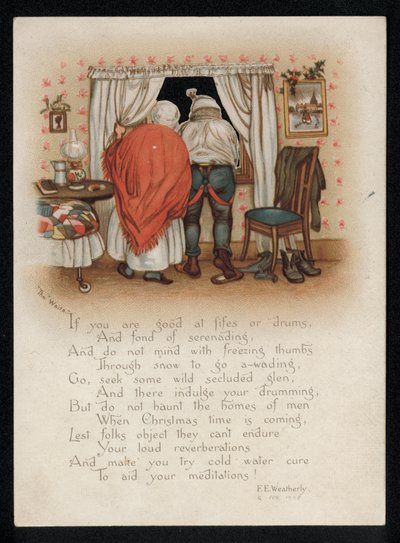 "The Waits."
If you are good at fifes or drums,
And fond of serenading,
And do not mind with freezing thumbs
Through snow to go a-wading,
Go, seek some wild secluded glen,
And there indulge your drumming,
But do not haunt the homes of men
When Christmas time is coming,
Lest folks object they can't endure
Your loud reverberations
And make you try cold water cure
To aid your meditations!
F.E.Weatherly.